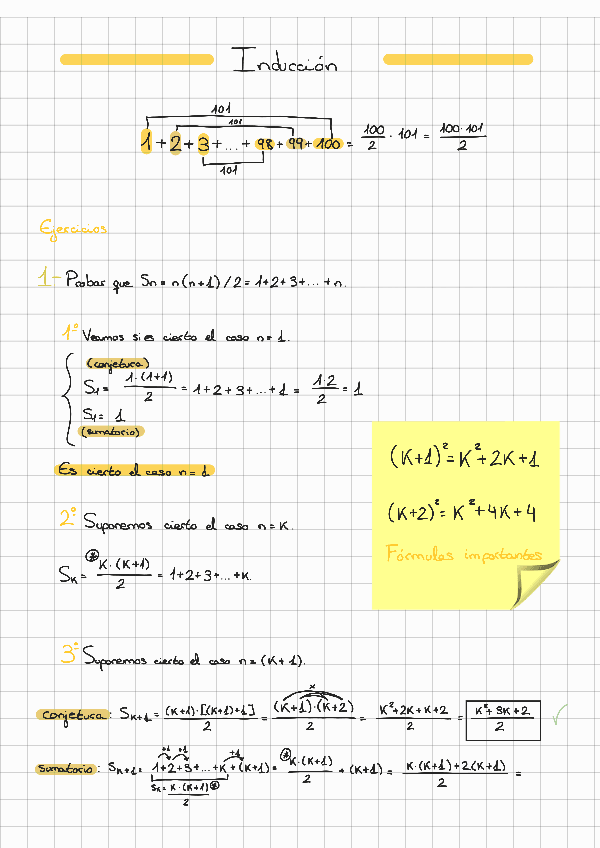 Inducción
101
101
1 + 2 + 3 + ... + 98 + 99 + 100 = 100/2 · 101 = 100·101/2
101
Ejercicios
1- Probar que Sn = n(n+1)/2 = 1+2+3+...+n.
1º Veamos si es cierto el caso n=1.
(conjetura)
S1 = 1·(1+1)/2 = 1+2+3+...+1 = 1·2/2 = 1
S1 = 1
(sumatorio)
Es cierto el caso n=1
(K+1)² = K²+2K+1
(K+2)² = K²+4K+4
Fórmulas importantes
2º Suporemos cierto el caso n=K.
SK = * K·(K+1)/2 = 1+2+3+...+K.
3º Suporemos cierto el caso n=(K+1).
conjetura: SK+1 = (K+1)·[(K+1)+1]/2 = (K+1)·(K+2)/2 = K²+2K+K+2/2 = K²+3K+2/2 ✓
+1 +1 +1
sumatorio: SK+1 = 1+2+3+...+K+(K+1) = * K·(K+1)/2 + (K+1) = K·(K+1)+2(K+1)/2 =
SK = K·(K+1)/2 *